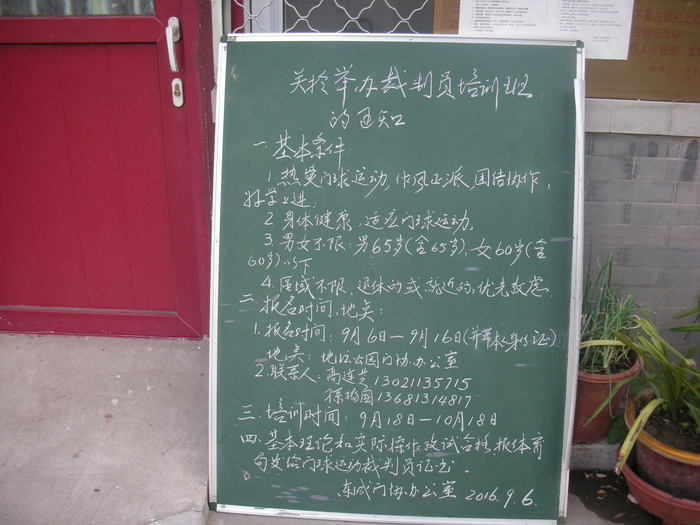 关于举办裁判员培训班
的通知
一.基本条件:
1.热爱门球运动,作风正派,团结协作,
好学上进;
2.身体健康,适应门球运动,
3.男女不限:男65岁(含65岁),女60岁(含
60岁)以下
4.区域不限,退休的或就近的,优先考虑.
二.报名时间,地点:
1.报名时间:9月6日—9月16日(并带本人身份证)
地点:地坛公园门协办公室
2.联系人:高连芝13021135715
13681314817
三.培训时间:9月18日—10月18日
四.基本理论和实际操作考试合格,报体育
局发给门球运动裁判员证书.
东城门协办公室2016.9.6.